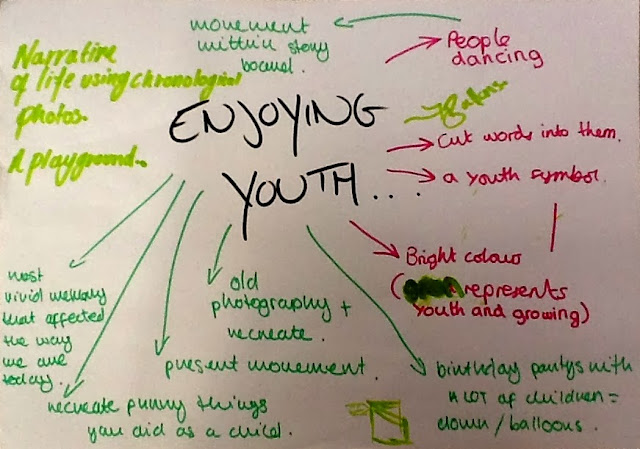 movement
within story
board.
People
dancing
Narrative
of life using chronological
photos.
A playground.
ENJOYING
YOUTH....
Cut words into them.
a youth symbol.
Bright colours
( represents
youth and growing)
most
vivid memory
that affected
the way
we are
today.
old
photography +
recreate.
present movement.
recreate funny things
you did as a child.
birthday partys with
A LOT of children =
clown / balloons.